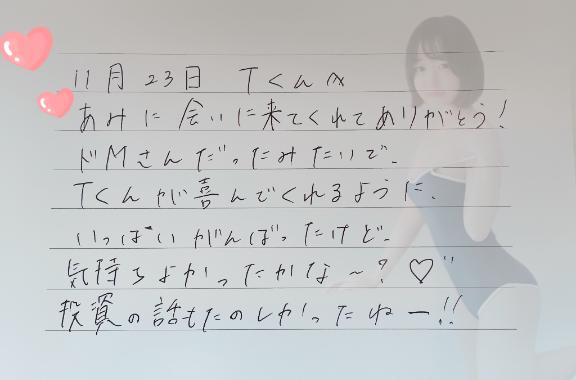 11月23日 Tくんへ
あみに会いに来てくれてありがとう!
ドMさんだったみたいで、
Tくんが喜んでくれるように、
いっぱいがんばったけど、
気持ちよかったかな〜?♡
投資の話もたのしかったねー!!